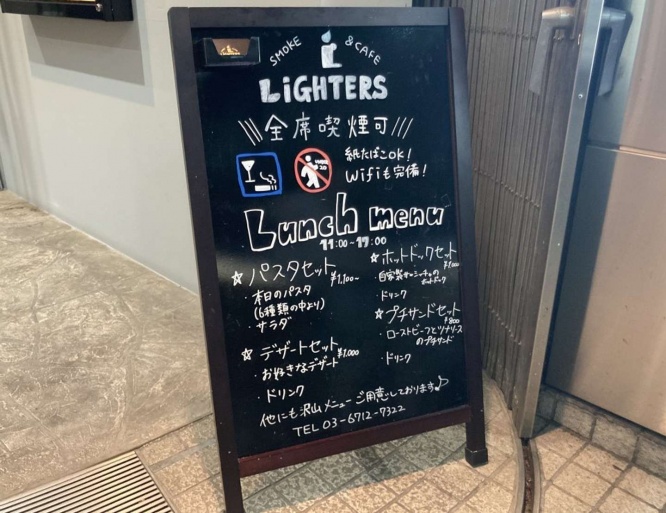 SMOKE & CAFE
LiGHTERS
\\\全席喫煙可///
紙たばこOK!
Wifiも完備!
Lunch menu
11:00~17:00
☆パスタセット
¥1,100~
・本日のパスタ
(6種類の中より)
・サラダ
☆デザートセット
¥1,000
・お好きなデザート
・ドリンク
☆ホットドックセット
¥1,000
・自家製チョリソーの
ホットドック
・ドリンク
☆プチサンドセット
¥800
・ローストビーフとツナソースのプチサンド
・ドリンク
他にも沢山メニューご用意しております♪
TEL 03-6712-7322